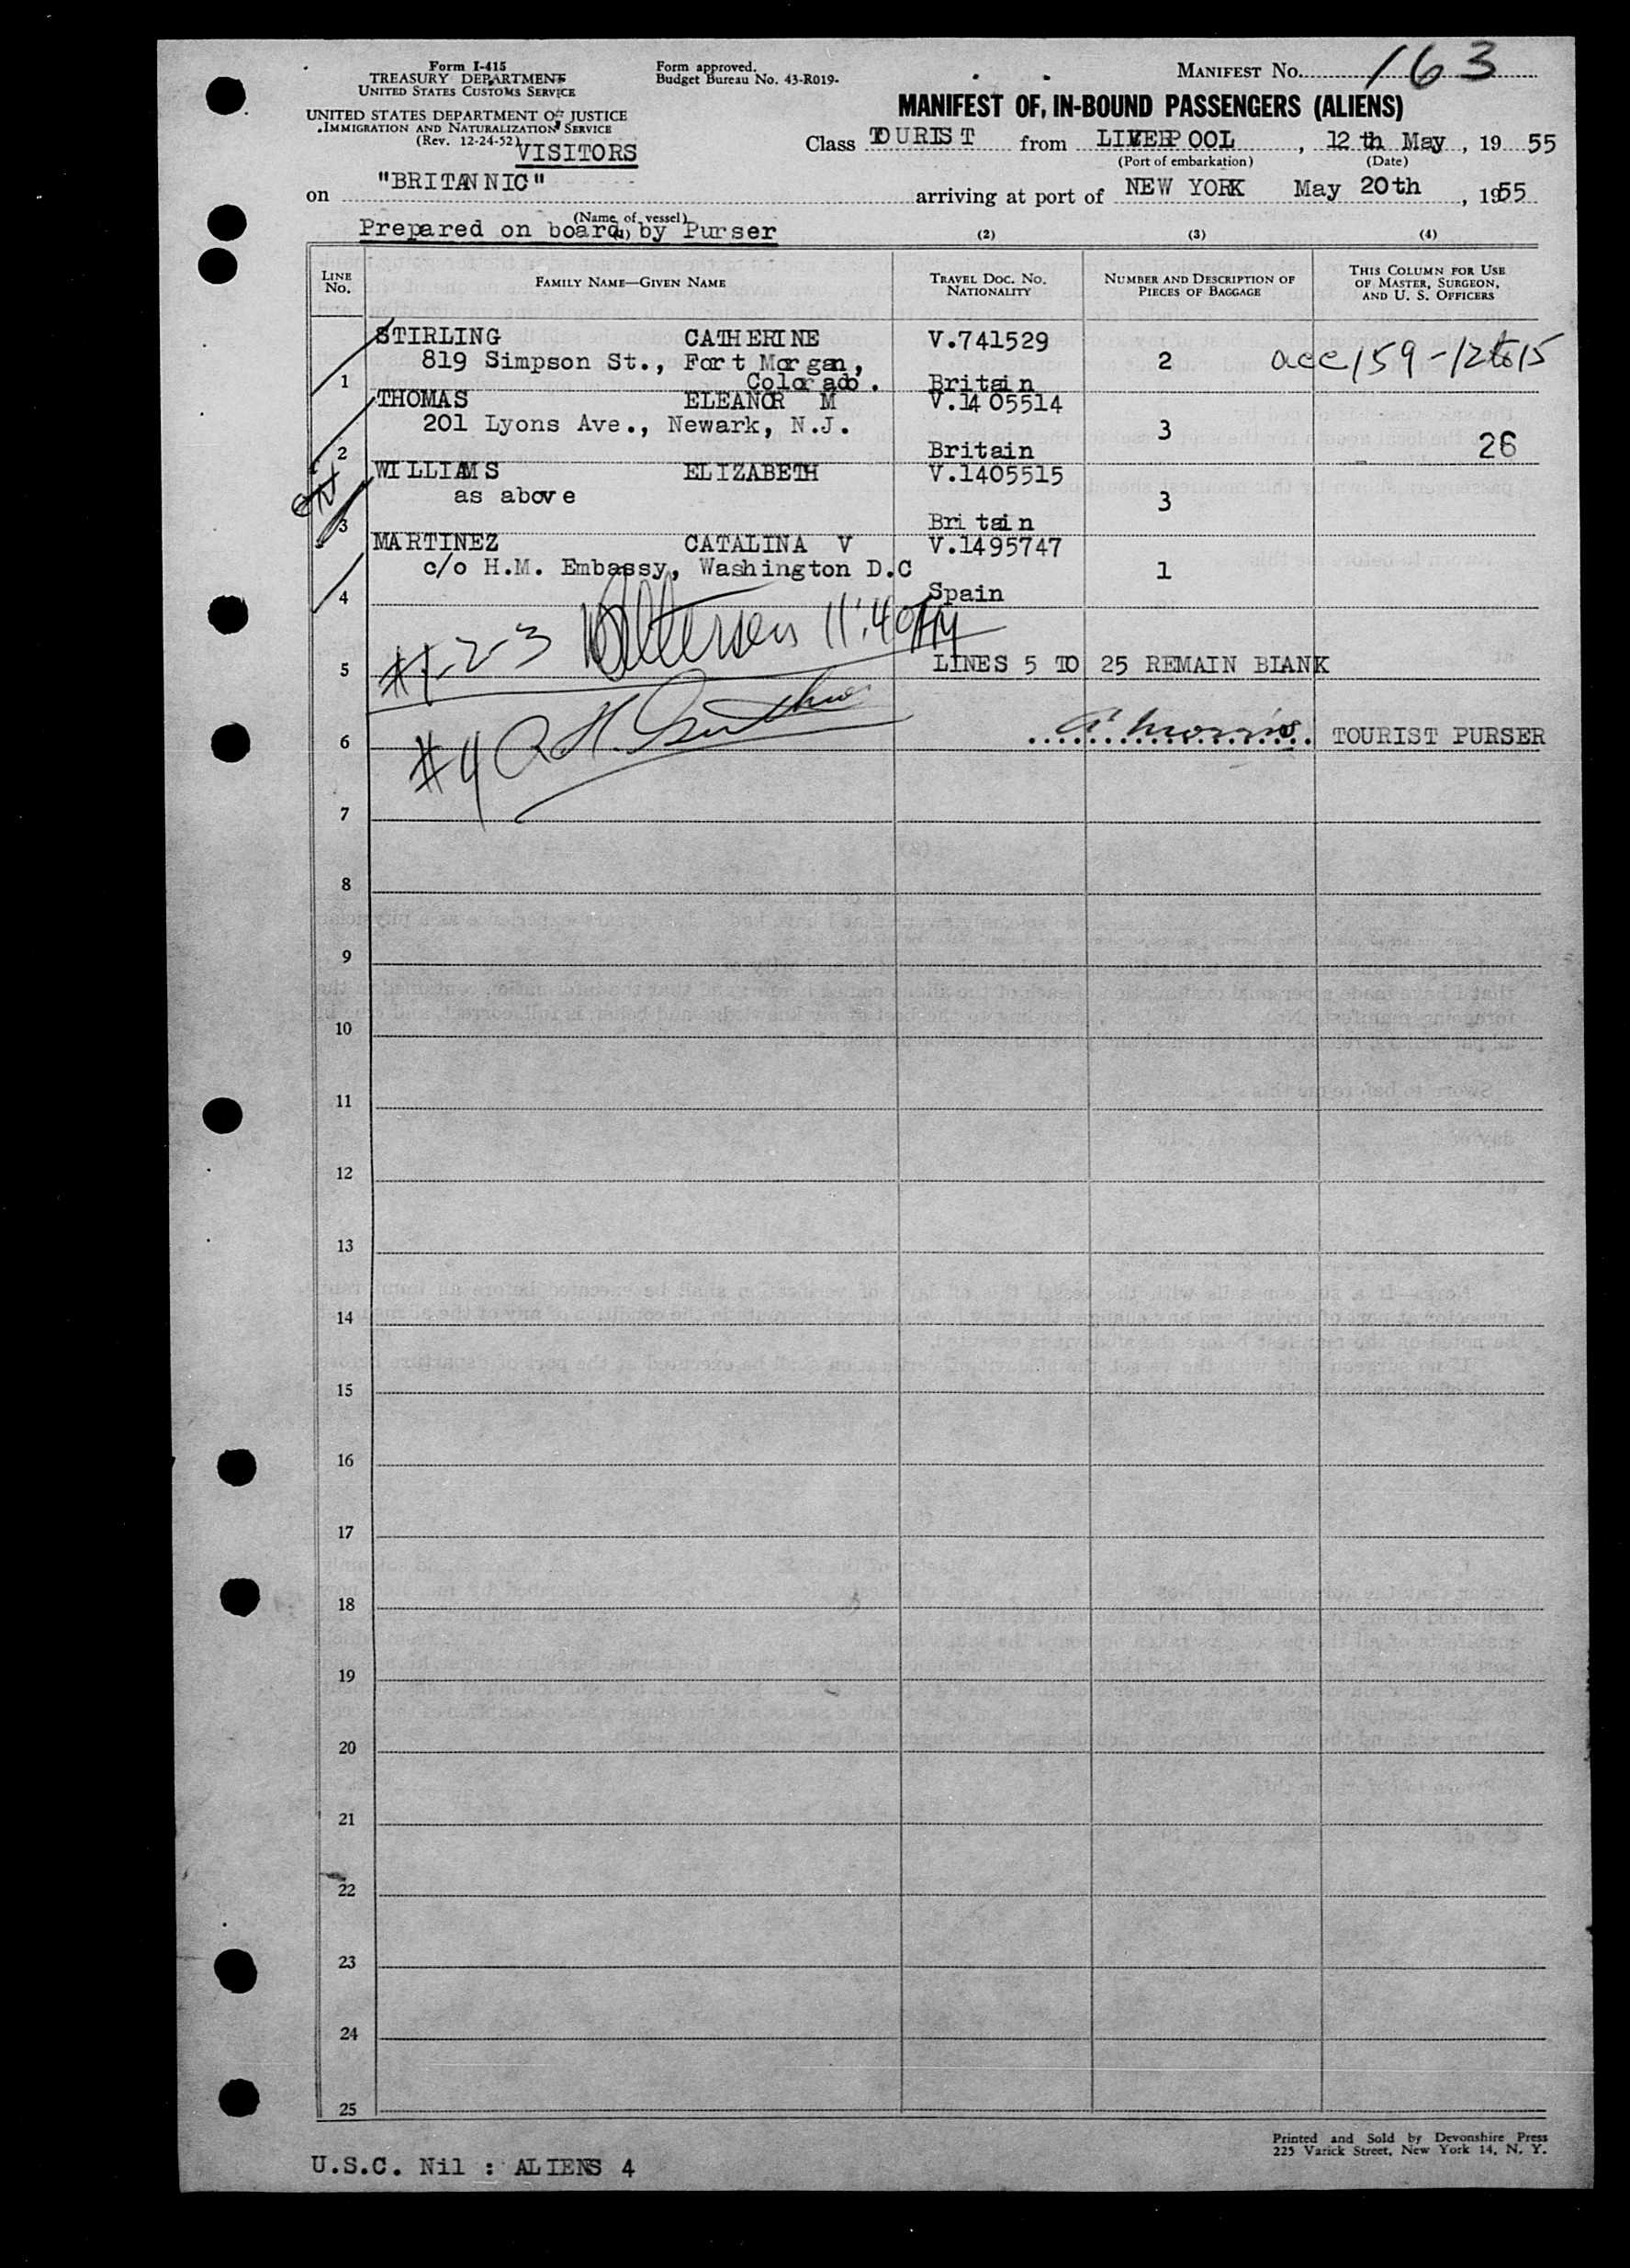 Form I-415
TREASURY DEPARTMENT
UNITED STATES CUSTOMS SERVICE
UNITED STATES DEPARTMENT OF JUSTICE
IMMIGRATION AND NATURALIZATION SERVICE
(Rev. 12-24-52)
VISITORS
Form approved.
Budget Bureau No. 43-R019-
MANIFEST NO. 163
MANIFEST OF IN-BOUND PASSENGERS (ALIENS)
Class TOURIST from LIVERPOOL, 12th May, 1955
(Port of embarkation) (Date)
on "BRITANNIC" arriving at port of NEW YORK May 20th, 1955
(Name of vessel)
Prepared on board by Purser
(1) (2) (3) (4)
LINE NO. FAMILY NAME—GIVEN NAME TRAVEL DOC. NO. NATIONALITY NUMBER AND DESCRIPTION OF PIECES OF BAGGAGE THIS COLUMN FOR USE OF MASTER, SURGEON, AND U. S. OFFICERS
STIRLING CATHERINE V.741529
819 Simpson St., Fort Morgan, 2 acc 159-12 to 15
1 Colorado. Britain
THOMAS ELEANOR M V.1405514
201 Lyons Ave., Newark, N.J. 3
2 Britain 26
WILLIAMS ELIZABETH V.1405515
as above 3
3 Britain
MARTINEZ CATALINA V V.1495747
c/o H.M. Embassy, Washington D.C 1
4 Spain
#1-2-3 11:40AM
5 LINES 5 TO 25 REMAIN BLANK
6 TOURIST PURSER
#4
7
8
9
10
11
12
13
14
15
16
17
18
19
20
21
22
23
24
25
Printed and Sold by Devonshire Press
225 Varick Street, New York 14, N. Y.
U.S.C. Nil : ALIENS 4